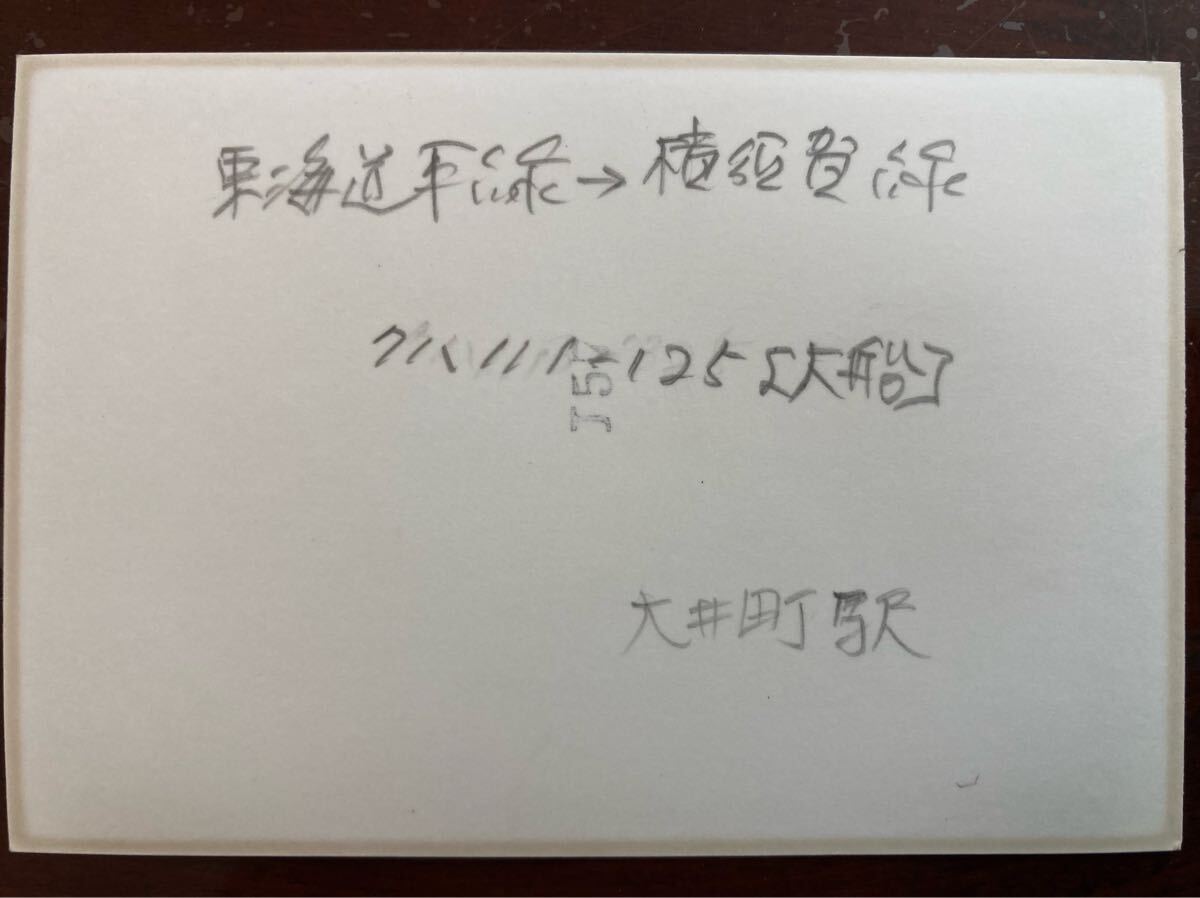 東海道本線→横須賀線
クハ111-125〔大船〕
J5
大井町駅